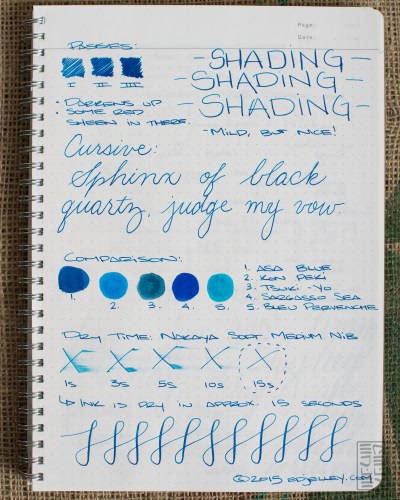 Page:
Date:
Passes:
I II III
• Darkens up
• Some red
sheen in there.
-Shading-
-Shading-
-Shading-
-Mild, but nice!
Cursive:
Sphinx of black
quartz, judge my vow
Comparison:
1. 2. 3. 4. 5.
1. Asa Blue
2. Kon Peki
3. Tsuki-Yo
4. Sargasso Sea
5. Bleu Pervenche
Dry Time: Nakaya Soft Medium Nib
X X X X X
1s 3s 5s 10s 15s
↳ Ink is dry in approx. 15 seconds
©2015 edjelley.com